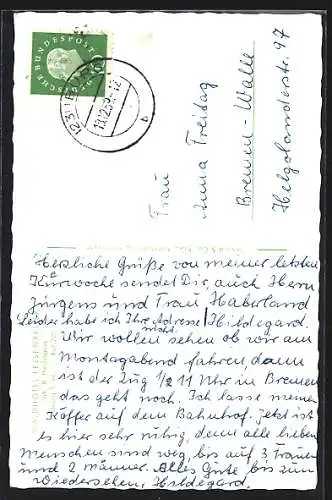 DEUTSCHE BUNDESPOST
Frau
Anna Freitag
Bremen-Walle
Helgolanderstr. 97
Herzliche Grüße von meiner letzten
Kurwoche sendet Dir, auch Herrn
Jürgens und Frau Haberland
Leider habe ich Ihre Adresse nicht. Hildegard.
Wir wollen sehen ob wir am
Montagabend fahren, dann
ist der Zug 1/2 11 Uhr in Bremen
das geht noch. Ich lasse meinen
Koffer auf dem Bahnhof. Jetzt ist
es hier sehr ruhig, denn alle lieben
Menschen sind weg, bis auf 3 Frauen
und 2 Männer. Alles Gute bis zum
Wiedersehen, Hildegard.
WALDHOTEL FELSENKELLER